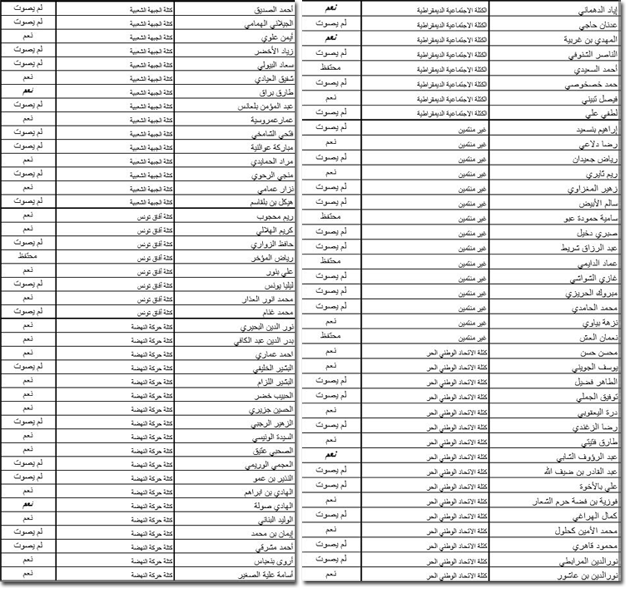 إياد الدهماني الكتلة الاجتماعية الديمقراطية نعم
عدنان حاجي الكتلة الاجتماعية الديمقراطية لم يصوت
المهدي بن غربية الكتلة الاجتماعية الديمقراطية نعم
الناصر الشنوفي الكتلة الاجتماعية الديمقراطية لم يصوت
أحمد السعيدي الكتلة الاجتماعية الديمقراطية محتفظ
حمد خصخوصي الكتلة الاجتماعية الديمقراطية لم يصوت
فيصل تبيني الكتلة الاجتماعية الديمقراطية نعم
لطفي علي الكتلة الاجتماعية الديمقراطية لم يصوت
إبراهيم بنسعيد غير منتمين لم يصوت
رضا دلاعي غير منتمين نعم
رياض جعيدان غير منتمين لم يصوت
ريم ثايري غير منتمين نعم
زهير المغزاوي غير منتمين لم يصوت
سالم الأبيض غير منتمين لم يصوت
سامية حمودة عبو غير منتمين محتفظ
صبري دخيل غير منتمين لم يصوت
عبد الرزاق شريط غير منتمين لم يصوت
عماد الدايمي غير منتمين محتفظ
غازي الشواشي غير منتمين لم يصوت
مبروك الحريزي غير منتمين لم يصوت
محمد الحامدي غير منتمين لم يصوت
نزهة بياوي غير منتمين نعم
نعمان العش غير منتمين محتفظ
محسن حسن كتلة الاتحاد الوطني الحر نعم
يوسف الجويني كتلة الاتحاد الوطني الحر نعم
الطاهر فضيل كتلة الاتحاد الوطني الحر لم يصوت
توفيق الجملي كتلة الاتحاد الوطني الحر لم يصوت
درة اليعقوبي كتلة الاتحاد الوطني الحر نعم
رضا الزغندي كتلة الاتحاد الوطني الحر لم يصوت
طارق فتيتي كتلة الاتحاد الوطني الحر نعم
عبد الرؤوف الشابي كتلة الاتحاد الوطني الحر نعم
عبد القادر بن ضيف الله كتلة الاتحاد الوطني الحر لم يصوت
علي بالأخوة كتلة الاتحاد الوطني الحر لم يصوت
فوزية بن فضة حرم الشعار كتلة الاتحاد الوطني الحر نعم
كمال الهراغي كتلة الاتحاد الوطني الحر لم يصوت
محمد الأمين كحلول كتلة الاتحاد الوطني الحر نعم
محمود قاهري كتلة الاتحاد الوطني الحر لم يصوت
نورالدين المرابطي كتلة الاتحاد الوطني الحر لم يصوت
نورالدين بن عاشور كتلة الاتحاد الوطني الحر نعم
أحمد الصديق كتلة الجبهة الشعبية لم يصوت
الجيلاني الهمامي كتلة الجبهة الشعبية لم يصوت
أيمن علوي كتلة الجبهة الشعبية نعم
زياد الأخضر كتلة الجبهة الشعبية لم يصوت
سعاد البيولي كتلة الجبهة الشعبية لم يصوت
شفيق العيادي كتلة الجبهة الشعبية نعم
طارق براق كتلة الجبهة الشعبية نعم
عبد المؤمن بلعانس كتلة الجبهة الشعبية لم يصوت
عمارعمروسية كتلة الجبهة الشعبية نعم
فتحي الشامخي كتلة الجبهة الشعبية لم يصوت
مباركة عوائنية كتلة الجبهة الشعبية لم يصوت
مراد الحمايدي كتلة الجبهة الشعبية نعم
منجي الرحوي كتلة الجبهة الشعبية لم يصوت
نزار عمامي كتلة الجبهة الشعبية نعم
هيكل بن بلقاسم كتلة الجبهة الشعبية لم يصوت
ريم محجوب كتلة آفاق تونس نعم
كريم الهلالي كتلة آفاق تونس نعم
حافظ الزواري كتلة آفاق تونس لم يصوت
رياض المؤخر كتلة آفاق تونس محتفظ
علي بنور كتلة آفاق تونس نعم
ليليا يونس كتلة آفاق تونس لم يصوت
محمد انور العذار كتلة آفاق تونس نعم
محمد غنام كتلة آفاق تونس لم يصوت
نور الدين البحيري كتلة حركة النهضة نعم
بدر الدين عبد الكافي كتلة حركة النهضة نعم
احمد عماري كتلة حركة النهضة نعم
البشير الخليفي كتلة حركة النهضة لم يصوت
البشير اللزام كتلة حركة النهضة نعم
الحبيب خضر كتلة حركة النهضة نعم
الحسين جزيري كتلة حركة النهضة نعم
الزهير الرجبي كتلة حركة النهضة لم يصوت
السيدة الونيسي كتلة حركة النهضة نعم
الصحبي عتيق كتلة حركة النهضة نعم
العجمي الوريمي كتلة حركة النهضة لم يصوت
النذير بن عمو كتلة حركة النهضة لم يصوت
الهادي بن ابراهم كتلة حركة النهضة نعم
الهادي صولة كتلة حركة النهضة نعم
الوليد البناني كتلة حركة النهضة نعم
إيمان بن محمد كتلة حركة النهضة لم يصوت
أحمد مشرقي كتلة حركة النهضة لم يصوت
أروى بنعباس كتلة حركة النهضة نعم
أسامة علية الصغير كتلة حركة النهضة نعم